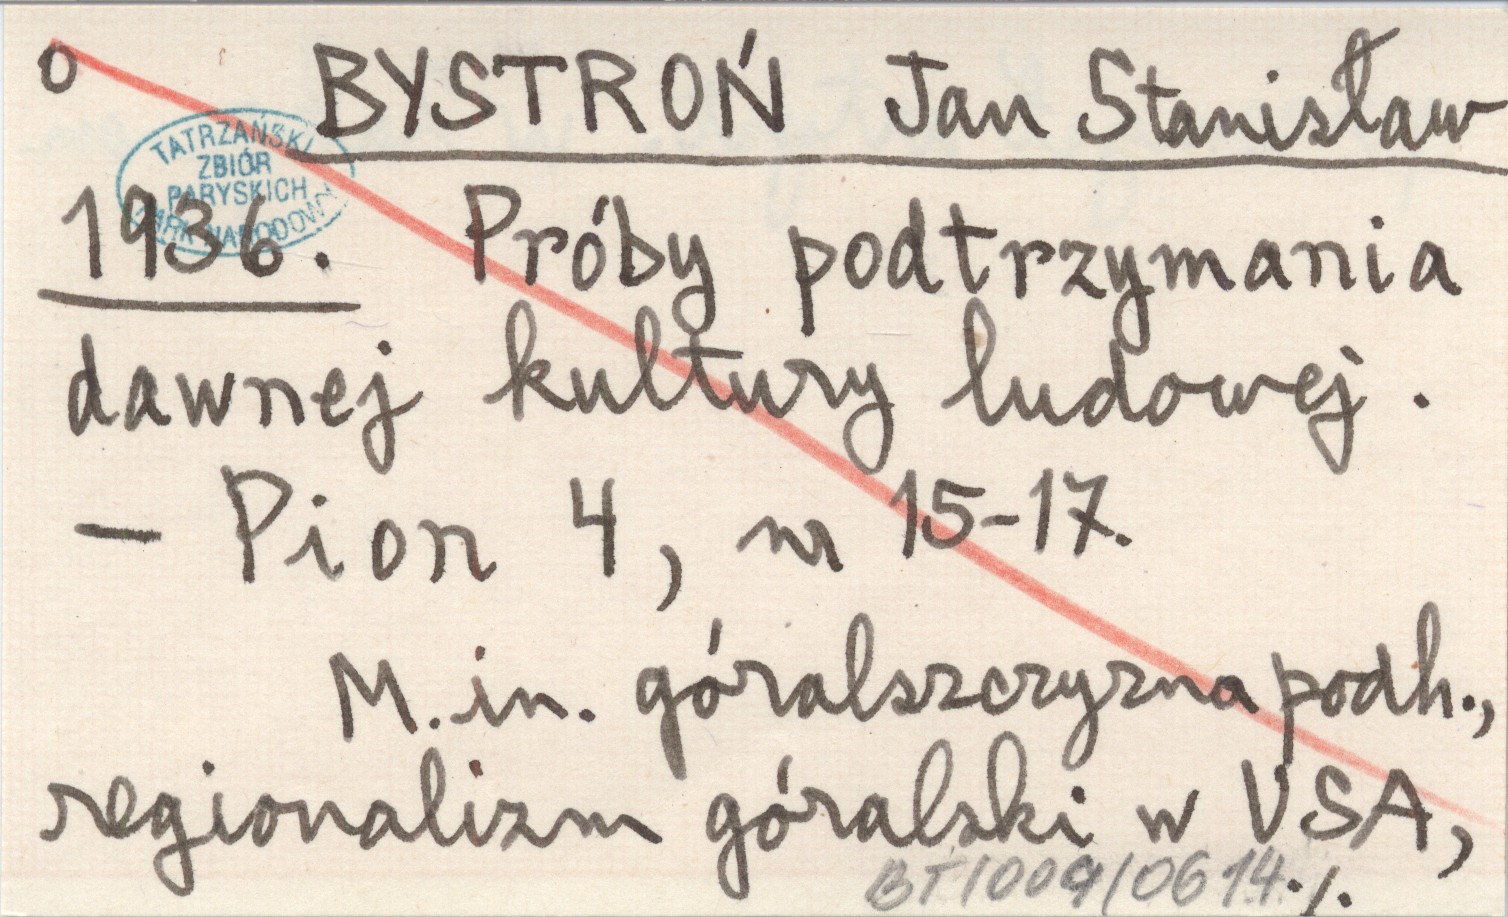 o BYSTROŃ Jan Stanisław
TATRZAŃSKI
ZBIÓR
PARYSKICH
PARK NARODOWY
1936. Próby podtrzymania
dawnej kultury ludowej.
— Pion 4, nr 15-17.
M.in. góralszczyzna podh.,
regionalizm góralski w USA,
BT1009/0614 ./.